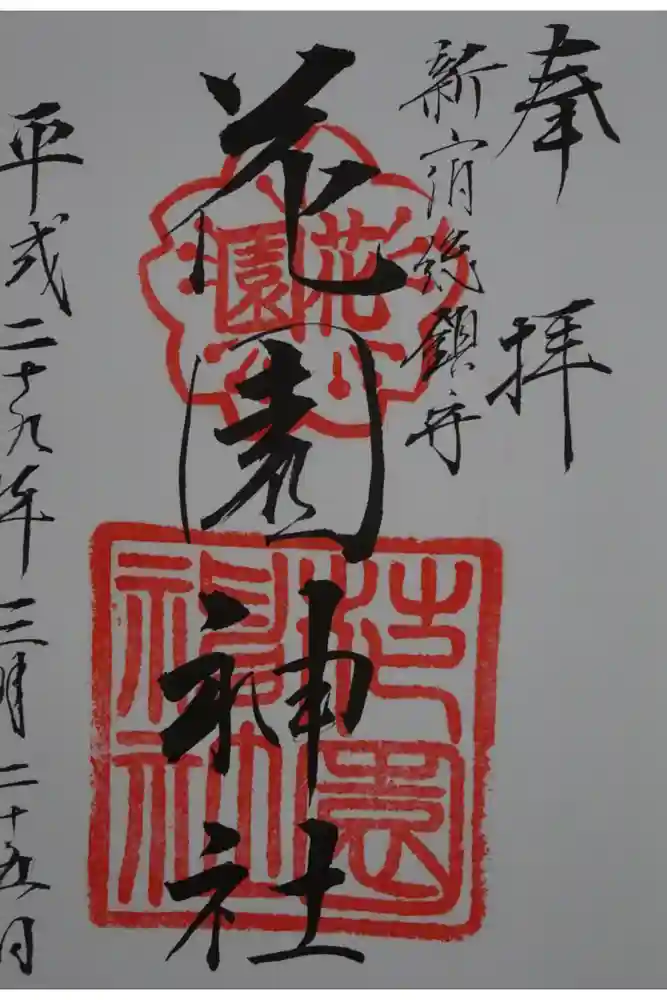 奉拝
新宿総鎮守
花園神社
花園
花園神社
平成二十九年三月二十五日